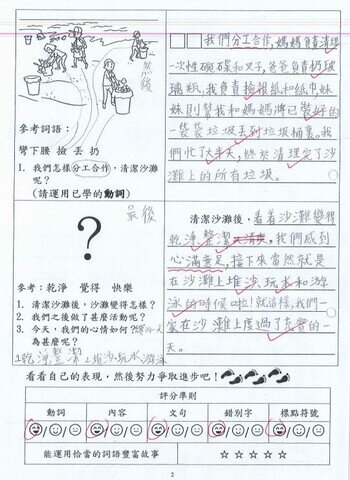 然後
參考詞語：
彎下腰 撿 丟 扔
1. 我們怎樣分工合作，清潔沙灘
呢？
(請運用已學的動詞)
我們分工合作，媽媽負責清理
一次性碗碟和叉子，爸爸負責扔玻
璃瓶，我負責撿報紙和紙巾，妹
妹則幫我和媽媽將已裝好的
一袋袋垃圾丟到垃圾桶裏。我
們忙了大半天，終於清理完了沙
灘上的所有垃圾。
最後
?
參考：乾淨 覺得 快樂
1. 清潔沙灘後，沙灘變得怎樣？
2. 我們之後做了甚麼活動呢？
3. 今天，我們的心情如何？
為甚麼呢？
1乾淨整潔 2堆沙玩水游泳
清潔沙灘後，看着沙灘變得
乾淨整潔，我們感到
心滿意足，接下來當然就是
在沙灘上堆沙、玩水和游
泳的時候啦！就這樣，我們一
家在沙灘上度過了充實的一
天。
看看自己的表現，然後努力爭取進步吧！
評分準則
動詞 內容 文句 錯別字 標點符號
能運用恰當的詞語豐富故事 ☆ ☆ ☆ ☆ ☆
2